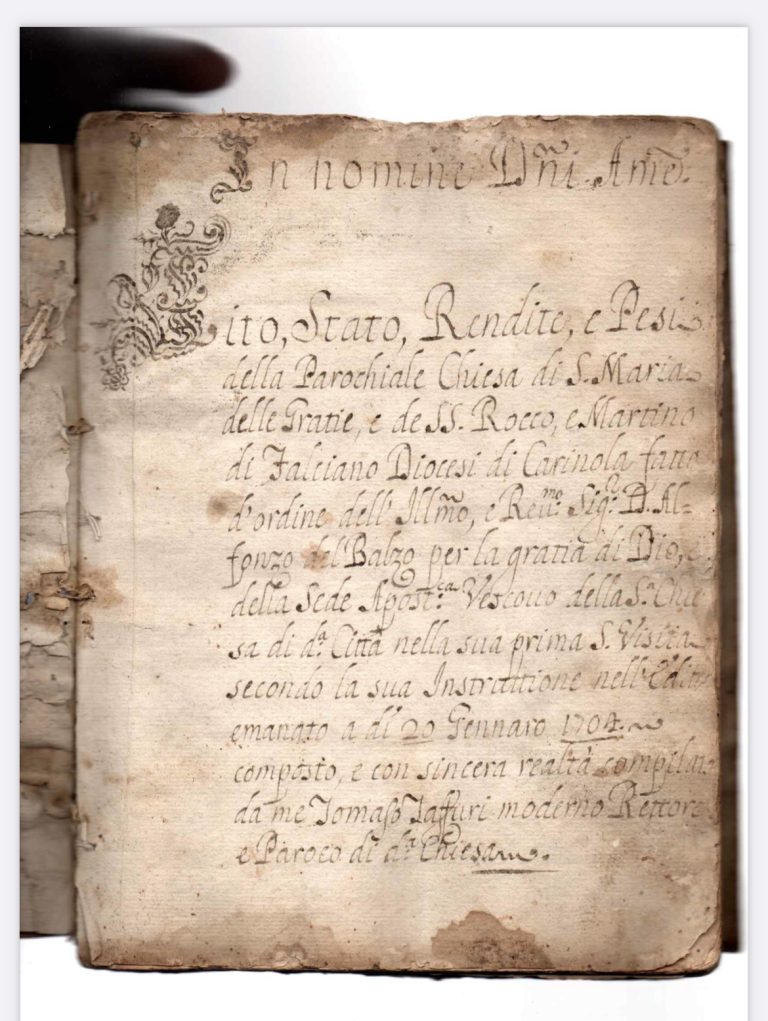 In nomine Dñi. Amē.
Sito, Stato, Rendite, e Pesi
della Parochiale Chiesa di S. Maria
delle Gratie, e de SS. Rocco, e Martino
di Falciano Diocesi di Carinola fatto
d'ordine dell' Illm̃o, e Reu.mo Sig.r D. Al=
fonzo del Balzo per la gratia di Dio, e
della Sede Apost.ca Vescouo della S.a Chie
sa di d.a Città nella sua prima S. Visita
secondo la sua Instruttione nell' Editto
emanato a di 20 Gennaro 1704.
composto, e con sincera realtà compilato
da me Tomaso Taffuri moderno Rettore
e Paroco di d.a Chiesa.